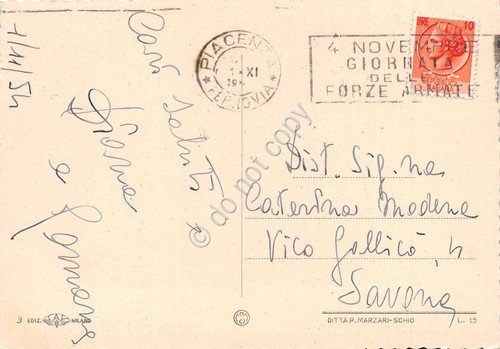 1/11/54
Cari Saluti
Diana
e Romano
PIACENZA
XI
FERROVIA
4 NOVEMBRE
GIORNATA
DELLE
FORZE ARMATE
LIRE 10
Dist. Sig.na
Caterina Modena
Vico Gallico 4
Savona
© do not copy
3 EDIZ. SAF MILANO
DITTA P. MARZARI-SCHIO
L. 15